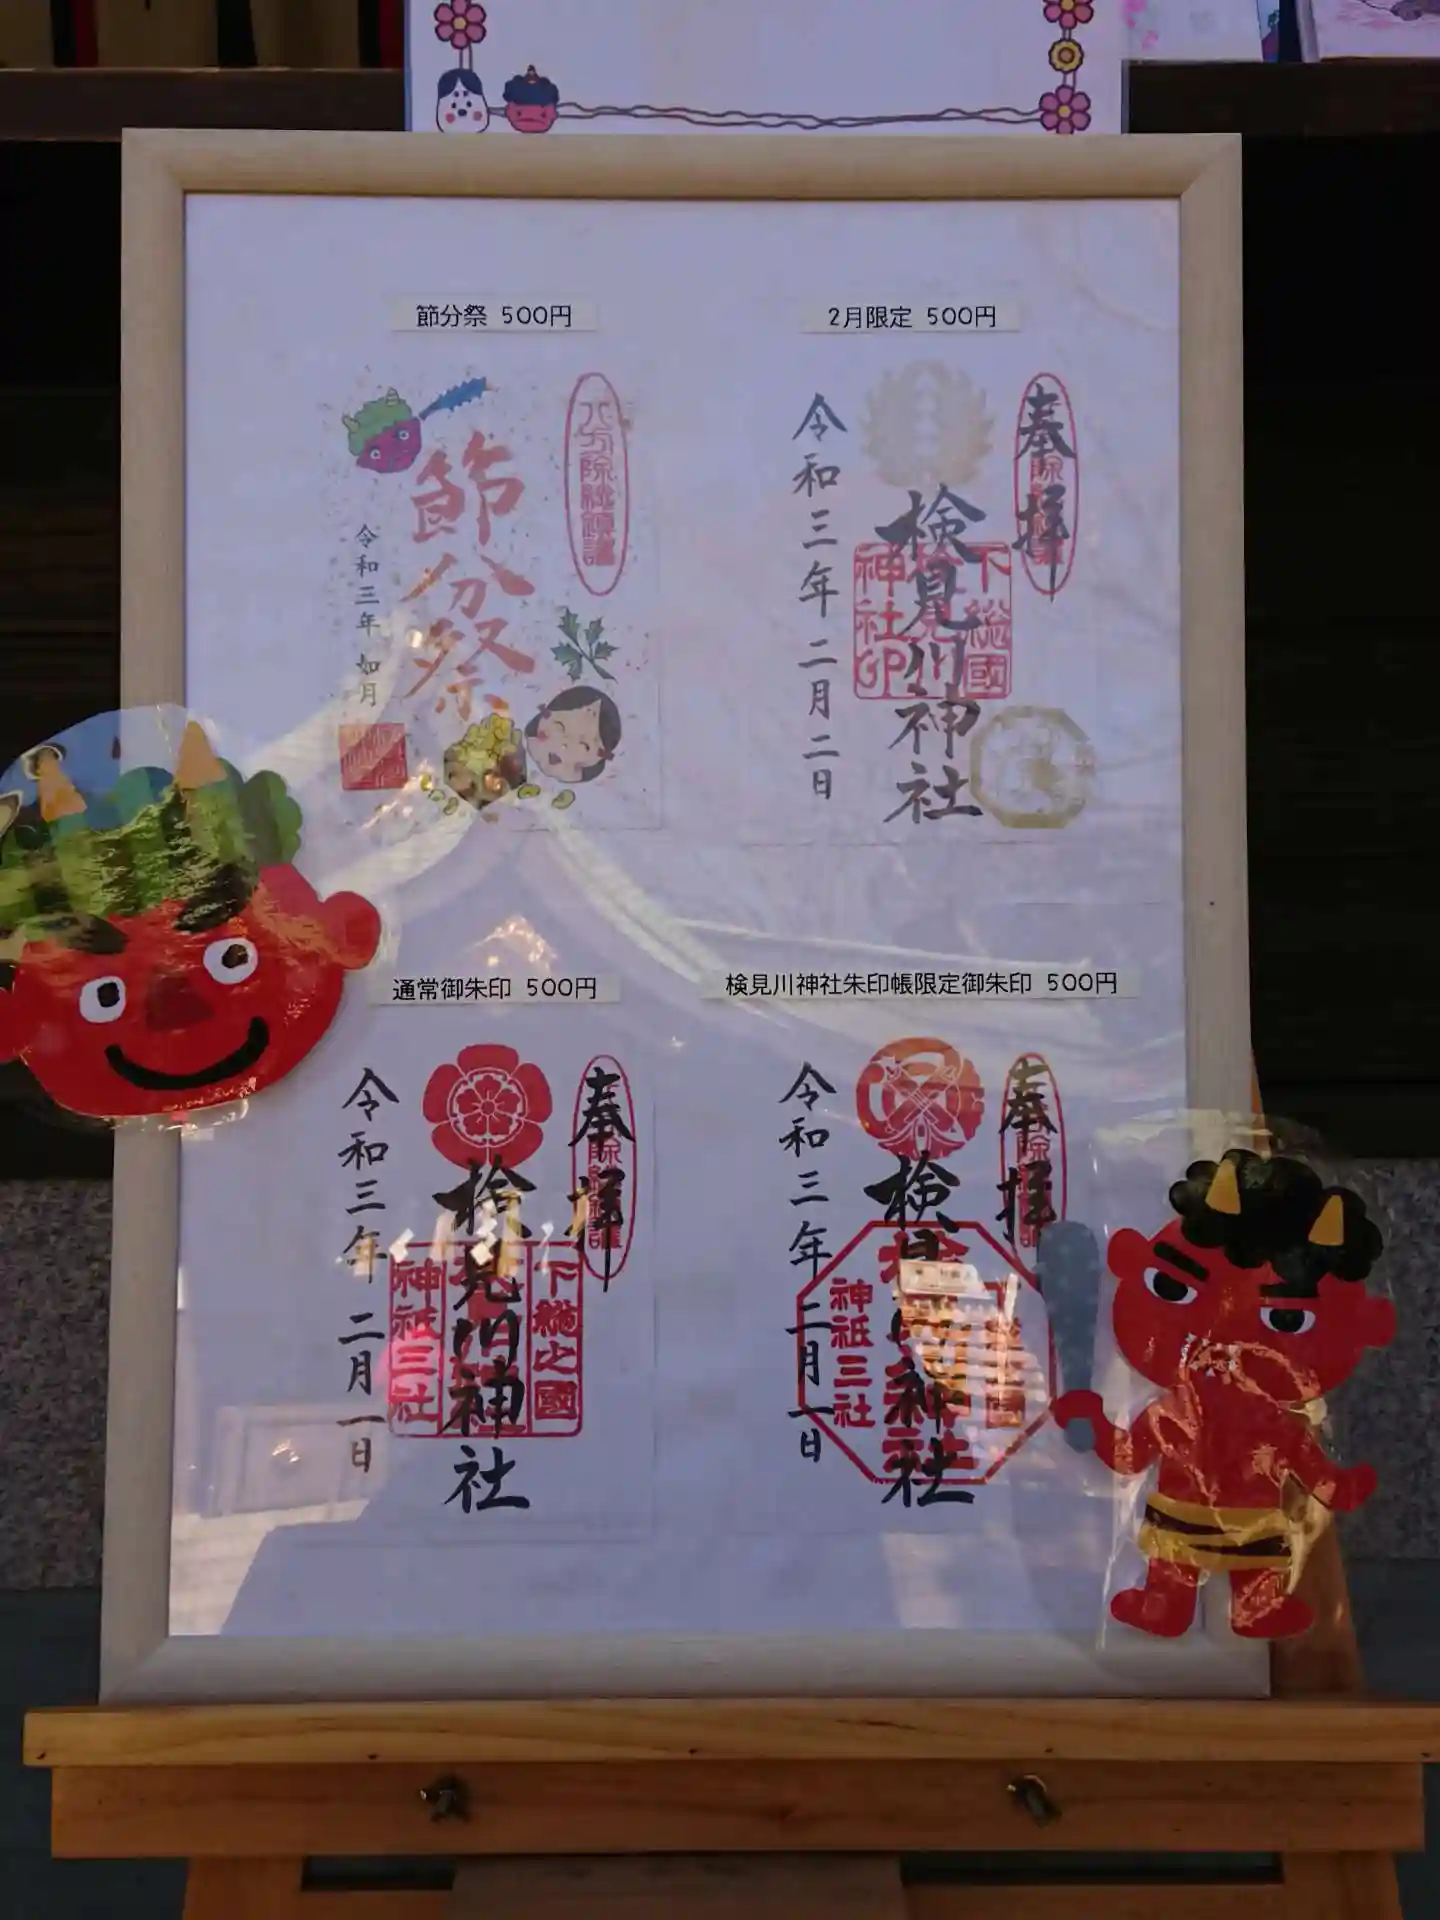 節分祭 500円
八方除総鎮護
節分祭
令和三年 如月
2月限定 500円
奉拝
検見川神社
下総國
神社印
令和三年 二月二日
通常御朱印 500円
奉拝
検見川神社
下総之國
神祇三社
令和三年 二月一日
検見川神社朱印帳限定御朱印 500円
奉拝
検見川神社
神祇三社
令和三年 二月一日